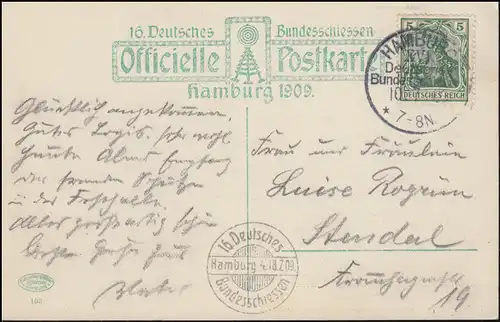 16. Deutsches Bundesschiessen
Officielle Postkarte
Hamburg 1909.
5 5
DEUTSCHES-REICH
HAMBURG
Bundes
10
* 7-8N
Glücklich angekommen,
Gutes Logis, sehr nett
Heute Abend Empfang
der fremden Schützen
in der Festhalle.
Alles großartig schön
Vater
Frau und Fräulein
Luise
Stendal
19.
16. Deutsches
Hamburg 4.-18.7.09
Bundesschiessen
102